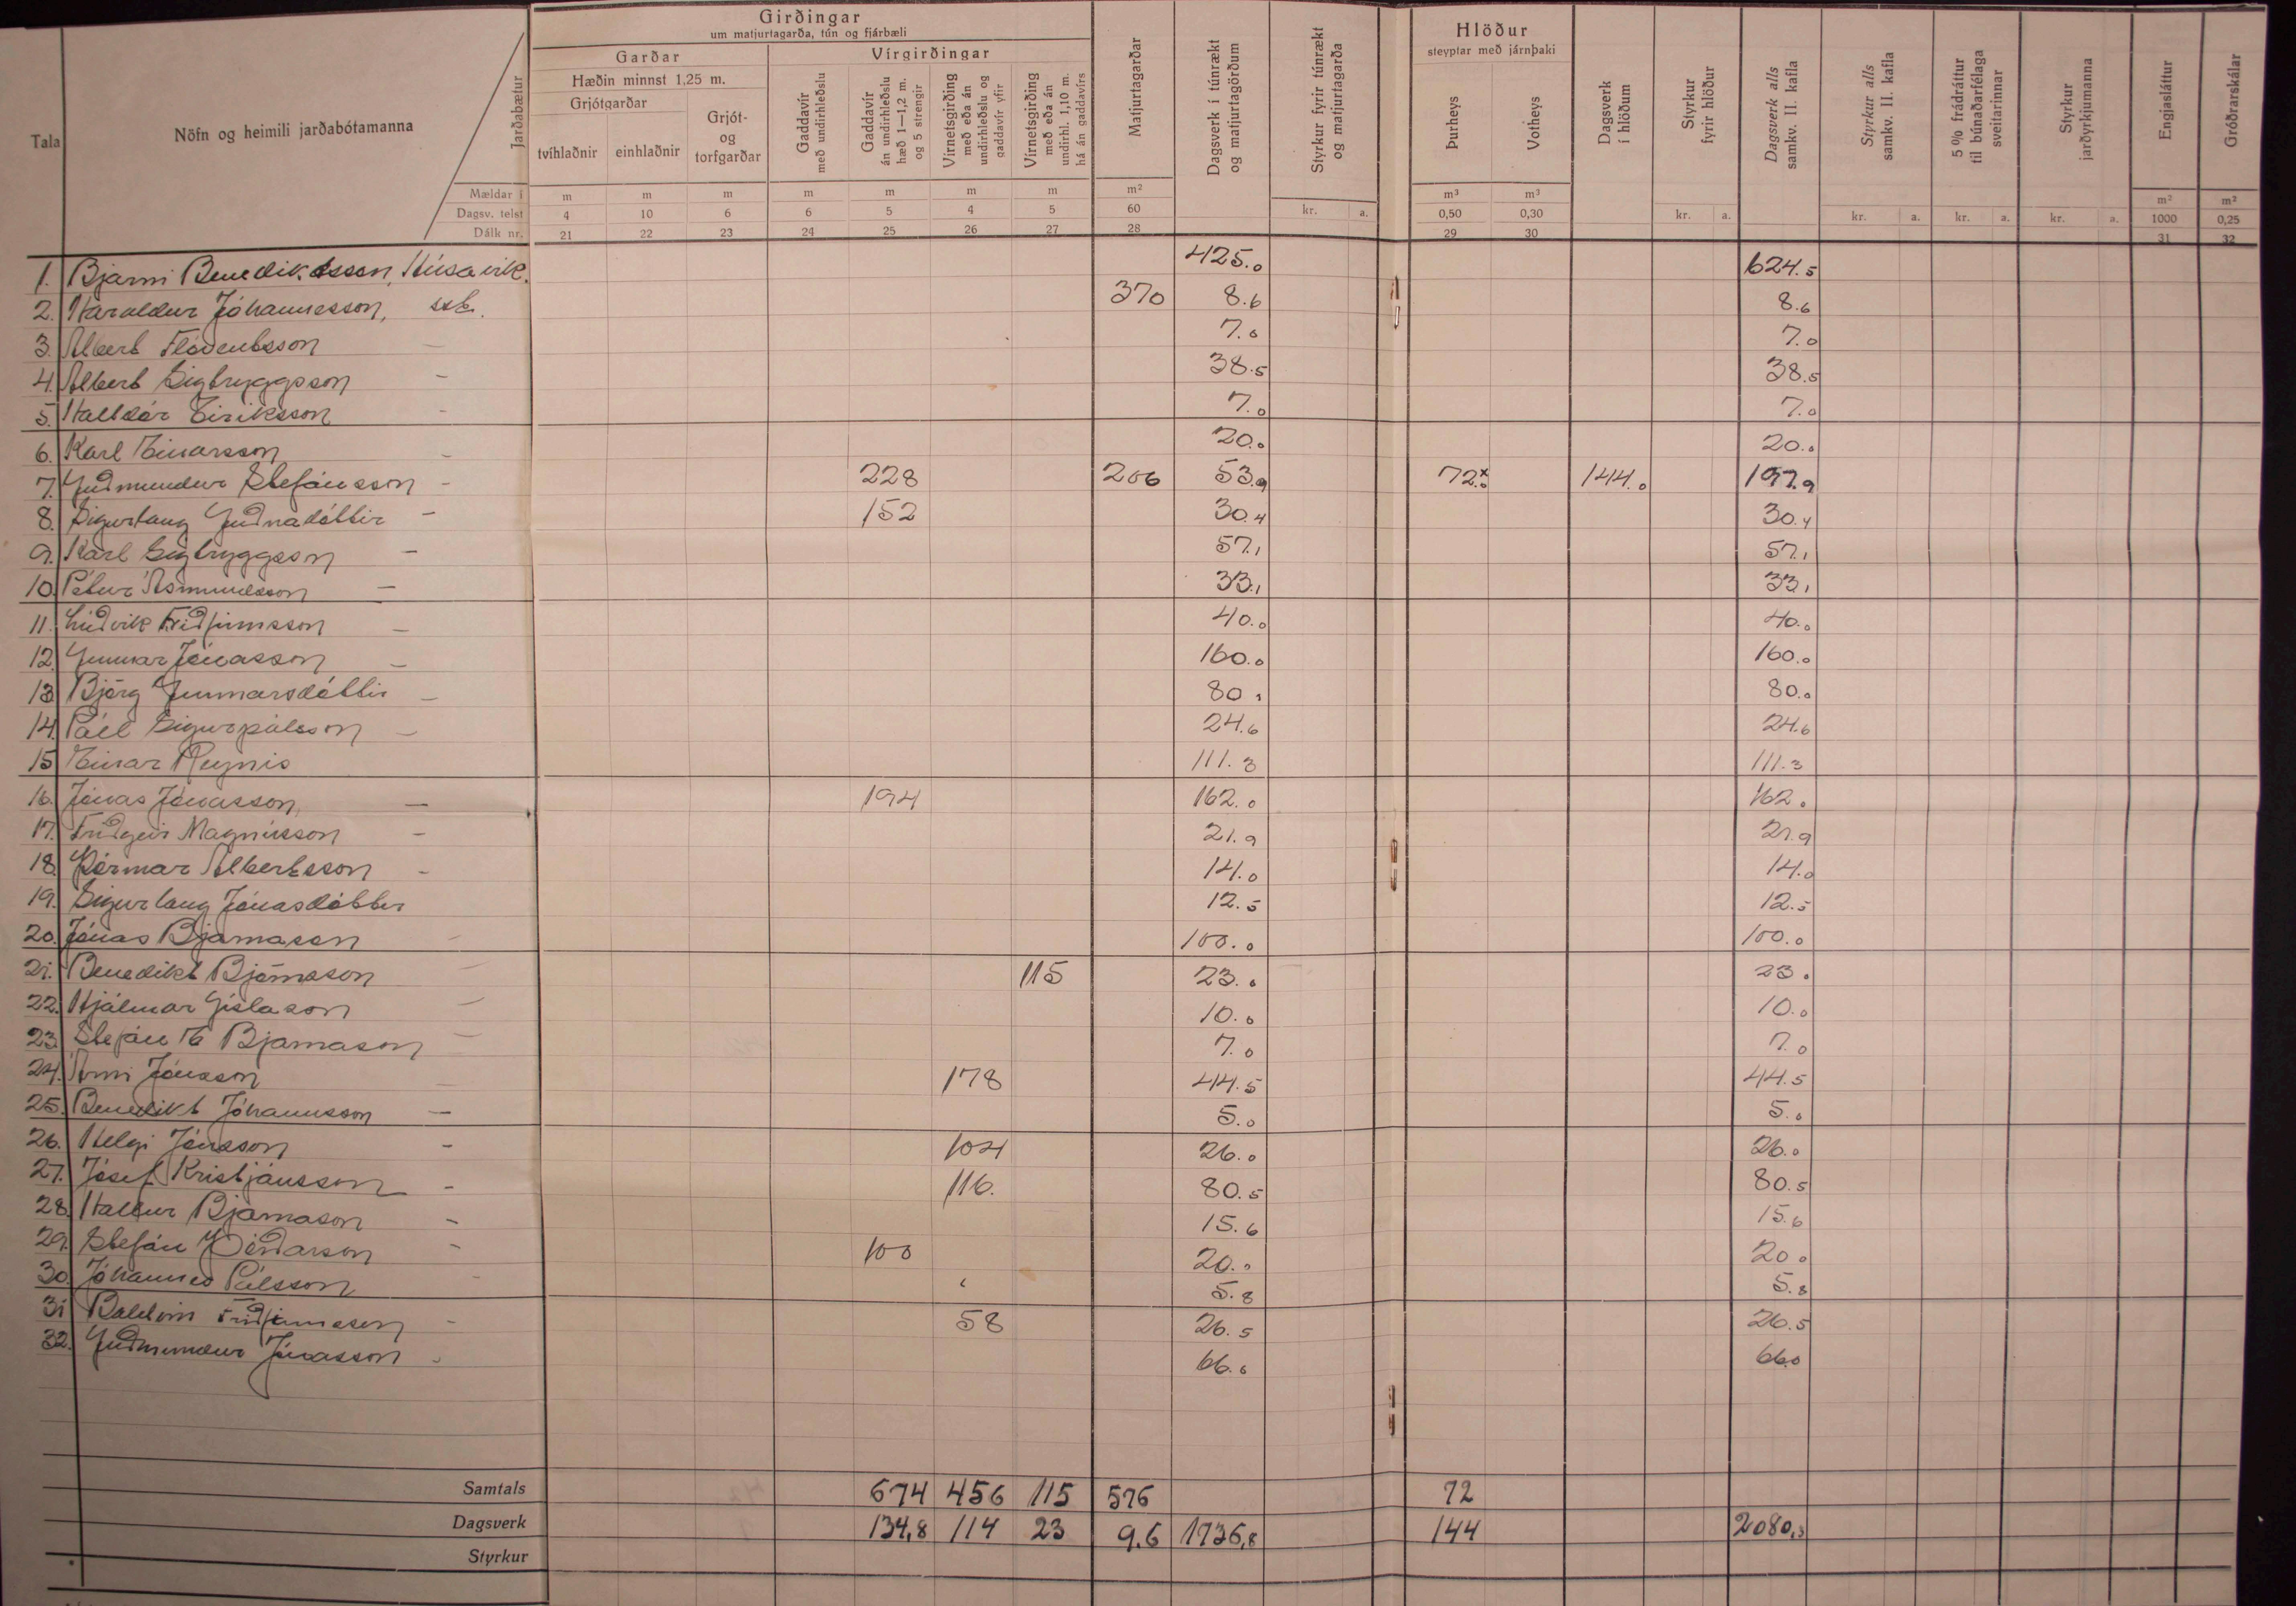 Girðingar
um matjurtagarða, tún og fjárbæli
Garðar
Vírgirðingar
Hæðin minnst 1,25 m.
Grjótgarðar
tvíhlaðnir
einhlaðnir
Grjót- og torfgarðar
Gaddavír með undirhleðslu
Gaddavír án undirhleðslu hæð 1—1,2 m. og 5 strengir
Virnetsgirðing með eða án undirhleðslu og gaddavír yfir
Virnetsgirðing með eða án undirhl. 1,10 m. há án gaddavírs
Matjurtagarðar
Dagsverk í túnrækt og matjurtagörðum
Styrkur fyrir túnrækt og matjurtagarða
Hlöður
steyptar með járnþaki
Þurheys
Votheys
Dagsverk í hlöðum
Styrkur fyrir hlöður
Dagsverk alls samkv. II. kafla
Styrkur alls samkv. II. kafla
5% frádráttur til búnaðarfélaga sveitarinnar
Styrkur jarðyrkjumanna
Engjasláttur
Gróðrarskálar
Tala
Nöfn og heimili jarðabótamanna
Jarðabætur
Mældar í m m m m m m m m² kr. a. m³ m³ kr. a. kr. a. kr. a. kr. a. m² m²
Dagsv. telst 4 10 6 6 5 4 5 60 0,50 0,30 1000 0,25
Dálk nr. 21 22 23 24 25 26 27 28 29 30 31 32
1. Bjarni Benediktsson, Húsavík. 425.0 624.5
2. Haraldur Jóhannesson, sst. 370 8.6 8.6
3. Albert Flóventsson — 7.0 7.0
4. Albert Sigtryggsson — 38.5 38.5
5. Halldór Eiríksson - 7.0 7.0
6. Karl Einarsson - 20.0 20.0
7. Guðmundur Stefánsson - 228 206 53.9 72.0 x 144.0 197.9
8. Sigurlaug Guðnadóttir - 152 30.4 30.4
9. Karl Sigtryggsson — 57.1 57.1
10. Pétur Ásmundsson — 33.1 33.1
11. Lúðvik Friðfinnsson — 40.0 40.0
12. Gunnar Jónasson — 160.0 160.0
13. Björg Gunnarsdóttir — 80.0 80.0
14. Páll Sigurpálsson — 24.6 24.6
15 Einar Reynis 111.3 111.3
16. Jónas Jónasson, — 194 162.0 162.0
17. Friðgeir Magnússon - 21.9 21.9
18. Þórmar Albertsson - 14.0 14.0
19. Sigurlaug Jónasdóttir 12.5 12.5
20. Jónas Bjarnason — 100.0 100.0
21. Benedikt Björnsson — 115 23.0 23.0
22. Hjálmar Gíslason — 10.0 10.0
23. Stefán E Bjarnason — 7.0 7.0
24. Árni Jónsson — 178 44.5 44.5
25. Benedikt Jóhannsson — 5.0 5.0
26. Helgi Jónsson - 104 26.0 26.0
27. Jósef Kristjánsson - 116. 80.5 80.5
28. Hallur Bjarnason - 15.6 15.6
29. Stefán Þórðarson - 100 20.0 20.0
30. Jóhannes Pálsson - 5.8 5.8
31 Baldvin Friðfinnsson - 58 26.5 26.5
32. Guðmundur Jónasson - 66.0 66.0
Samtals 674 456 115 576 72
Dagsverk 134,8 114 23 9.6 1736,8 144 2080,3
Styrkur